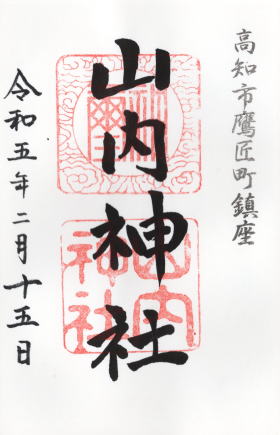 高知市鷹匠町鎮座
山内神社
令和五年二月十五日
山内
神社